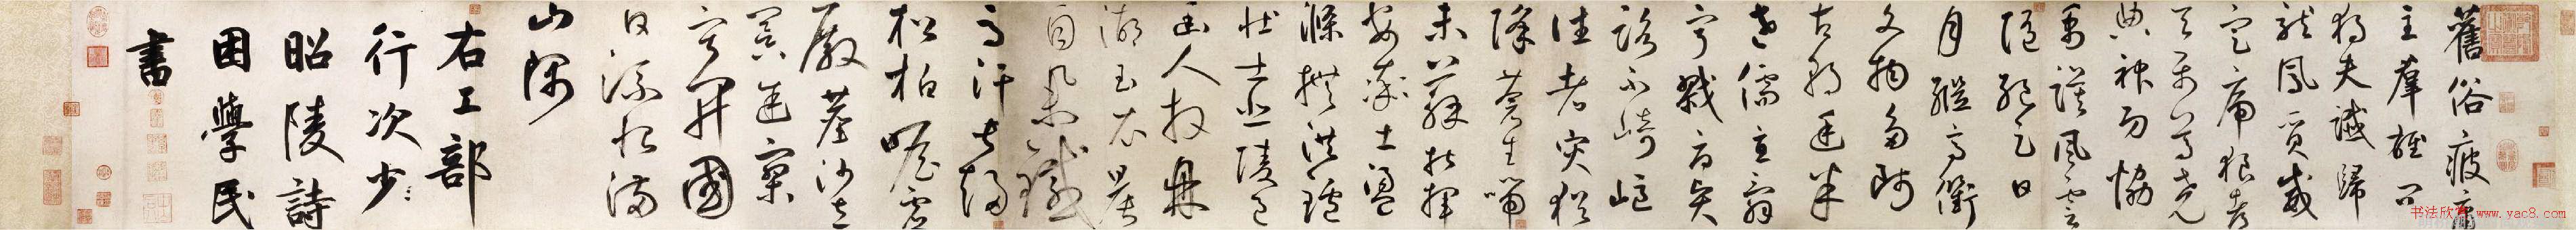 舊俗疲庸
主羣雄問
獨夫讖歸
龍鳳質威
定虎狼都
天屬尊堯
典神功協
禹謨風雲
隨絕足日
月繼高衢
文物多師
古朝廷半
老儒直詞
寧戮辱賢
路不崎嶇
往者灾猶
降蒼生喘
未蘇指揮
安率土盪
滌撫洪鑪
壯士悲陵邑
幽人拜鼎
湖玉衣晨
自舉鐵
馬汗常趨
松柏瞻虛
殿塵沙立
暝途寂
寥開國
日流恨滿
山隅
右工部
行次少
昭陵詩
困學民
書
书法欣赏 www.yac8.com